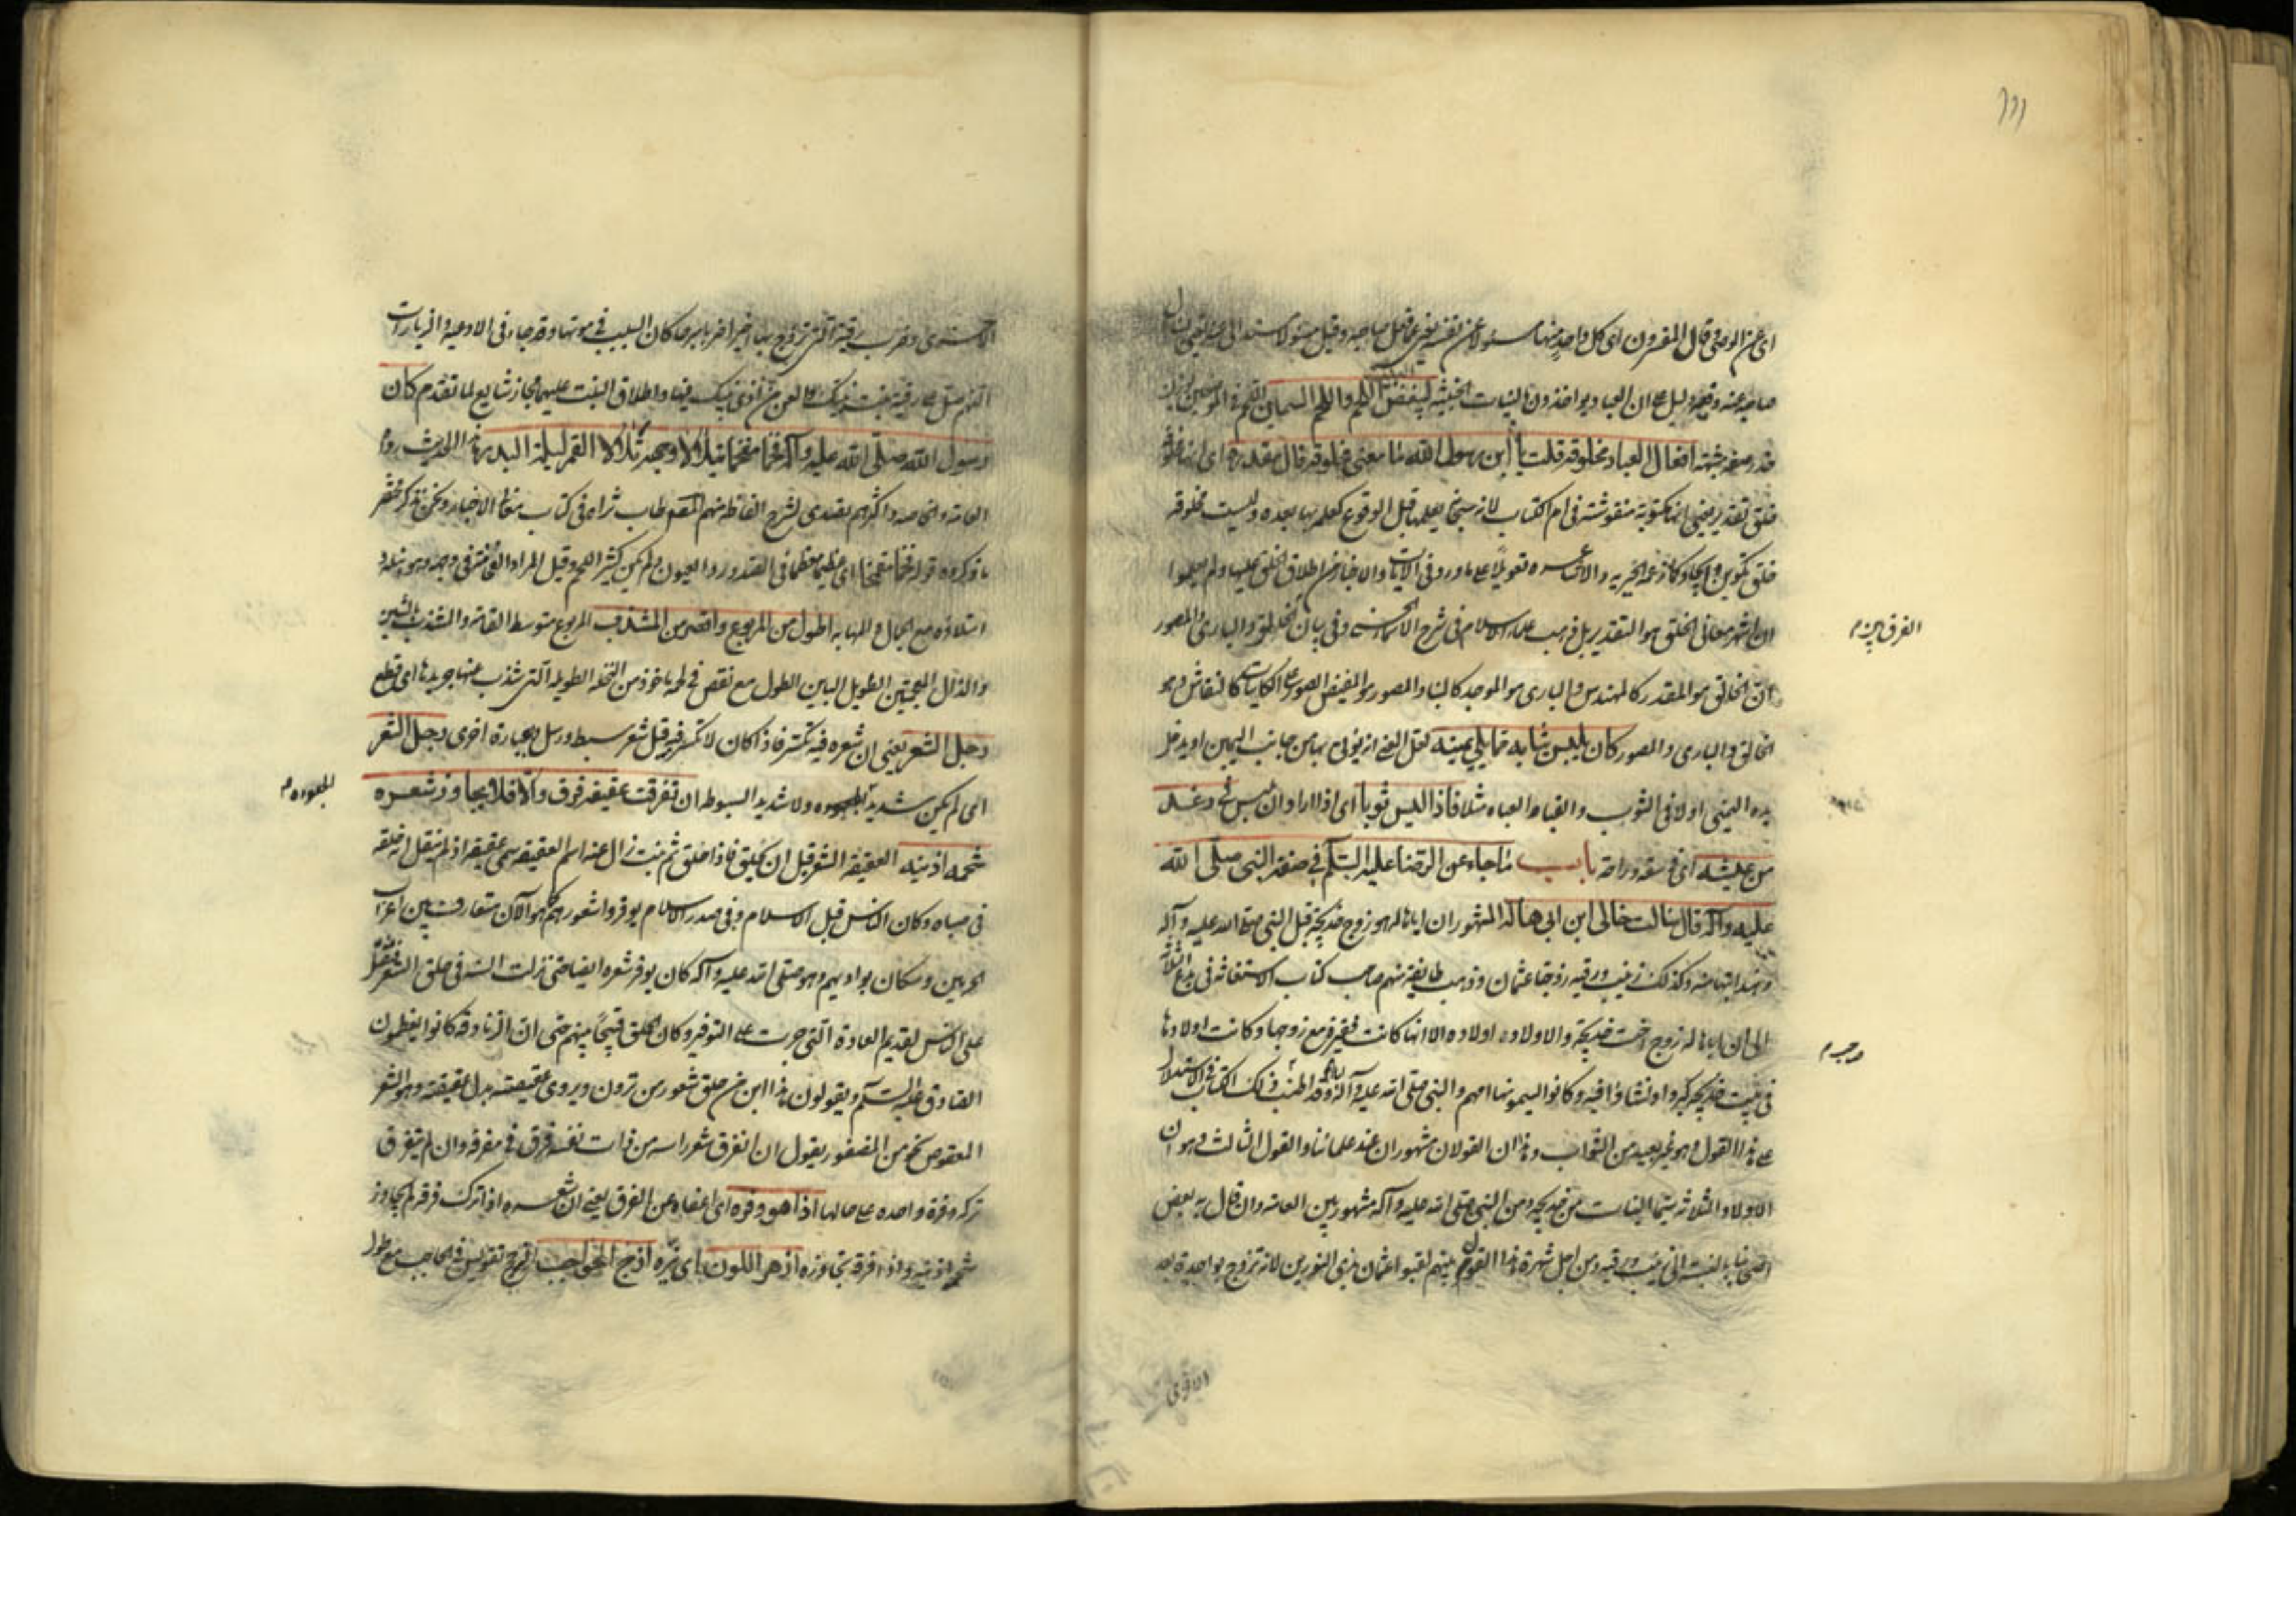 ١١١
اى عن الوصى وقال المفسرون اى كل واحد منها مسئولا عن نفسه يعنى عما فعل صاحبه وقيل مسئولا مستندا الى عنه
صاحبه عنه وفيه دليل على ان العباد يؤاخذون بالنيات الخبيثة ليبغض اللحم واللحم السمين
افعال العباد مخلوقة قلت يا ابن رسول الله ما معنى مخلوقة قال مقدرة اى انها مخلوقة
خلق تقدير يعنى انها مكتوبة منقوشة فى ام الكتاب لانه سبحانه يعلمها قبل الوقوع كعلمه بها بعده وليست مخلوقة
خلق تكوين وايجاد كما زعمه الجبرية والاشاعره تعويلا على ما ورد فى الآيات والاخبار من اطلاق الخلق عليها ولم يعلموا
ان اشهر معانى الخلق هو التقدير بل ذهب علماء الاسلام فى شرح الاسماء الحسنى وفى بيان الخالق والبارى والمصور
الفرق بين م
ان الخالق هو المقدر كالمهندس والبارى هو الموجد كالبناء والمصور هو المفيض الصور على الكاينات كالنقاش وهو
الخالق والبارى والمصور كان يلبس ثيابه مما يلى يمينه لعل المعنى انه يؤتى بها من جانب اليمين او يدخل
يده اليمنى اولا فى الثوب والقباء والعباء مثلا فاذا لبس ثوبا اى اذا اراد ان يلبس ثوبا
من عيشه اى فى سعة وراحة باب ما جاء عن الرضا عليه السلام فى صفة النبى صلى الله
عليه وآله قال سالت خالى ابن ابى هاله المشهور ان اباهاله هو زوج خديجة قبل النبى صلى الله عليه وآله
وهند ابنها منه وكذلك زينب ورقيه زوجتا عثمان وذهب طايفة منهم صاحب كتاب الاستغاثه فى بدع الثلاثة
الى ان اباهاله زوج اخت خديجة والاولاد اولاده الا انها كانت فقيرة مع زوجها وكانت اولادها
وجه م
فى بيت خديجة كبروا ونشاؤا فيه وكانوا يسمونها امهم والنبى صلى الله عليه وآله اباهم وقد اطنب فى ذلك الكتاب فى الاستدلال
على هذا القول وهو غير بعيد من الصواب وهذان القولان مشهوران عند علمائنا والقول الثالث وهو ان
الاولاد الثلاثة سيما البنات من خديجه ومن النبى صلى الله عليه وآله مشهور بين العامه وان قال به بعض
اصحابنا بالنسبة الى زينب ورقيه ومن اجل شهرة هذا القول بينهم لقبوا عثمان بذى النورين لانه تزوج بواحدة بعد
الاخرى
الاخرى وضرب رقية التى تزوج بها اخيرا ضربا مبرحا كان السبب فى موتها وقد جاء فى الادعيه والزيارات
اللهم صل على رقية بنت نبيك والعن من اذى نبيك فيها واطلاق البنت عليهما مجاز شايع لما تقدم كان
رسول الله صلى الله عليه وآله فخما مفخما يتلالا وجهه تلالا القمر ليلة البدر هذا الحديث رواه
العامه والخاصه واكثرهم تصدى لشرح الفاظه منهم الصدوق طاب ثراه فى كتاب معانى الاخبار ونحن نذكر مختصر
ما ذكروه قوله فخما مفخما اى عظيما معظما فى الصدور والعيون ولم يكن كثير اللحم وقيل المراد الفخامة فى وجهه وهو نبله و
امتلاؤه مع الجمال والمهابه اطول من المربوع واقصر من المشذب المربوع متوسط القامة والمشذب بالشين
والذال المعجمتين الطويل الباين الطول مع نقص فى لحمه ماخوذ من النخلة الطويله التى شذب عنها جريدها اى قطع
رجل الشعر يعنى ان شعره فيه تكسر فاذا كان لا تكسر فيه قيل شعر سبط ورسل وبعبارة اخرى رجل الشعر
اى لم يكن شديد الجعوده ولا شديد السبوطه ان تفرقت عقيقته فرق والا فلا يجاوز شعره
الجعوده م
شحمة اذنيه العقيقة الشعر قبل ان يحلق فاذا حلق ثم نبت زال عنه اسم العقيقه سمى عقيقة اذ لم ينقل انه حلقه
فى صباه وكان الناس قبل الاسلام وفى صدر الاسلام يوفروا شعورهم كما هو الآن متعارف بين اعراب
الحرمين وسكان بواديهم وهو صلى الله عليه وآله كان يوفر شعره ايضا حتى نزلت السنة فى حلق الشعر
على الناس لقديم العادة التى جرت على التوفير وكان الحلق قبيحا بينهم حتى ان الزنادقة كانوا يغيظون
الصادق عليه السلام ويقولون هذا ابن من حلق شعور من ترون ويروى عقيصته بدل عقيقته وهو الشعر
المعقوص نحو من المضفور يقول ان انفرق شعر راسه من ذات نفسه فرق فى مفرقه وان لم يتفرق
تركه وفرة واحده على حالها اذا هو وفره اى اعفاه عن الفرق يعنى ان شعره اذا ترك فرقه لم يجاوز
شحمة اذنيه واذا فرقه تجاوزه ازهر اللون اى نيره ازج الحواجب الزج تقويس فى الحاجب مع طول